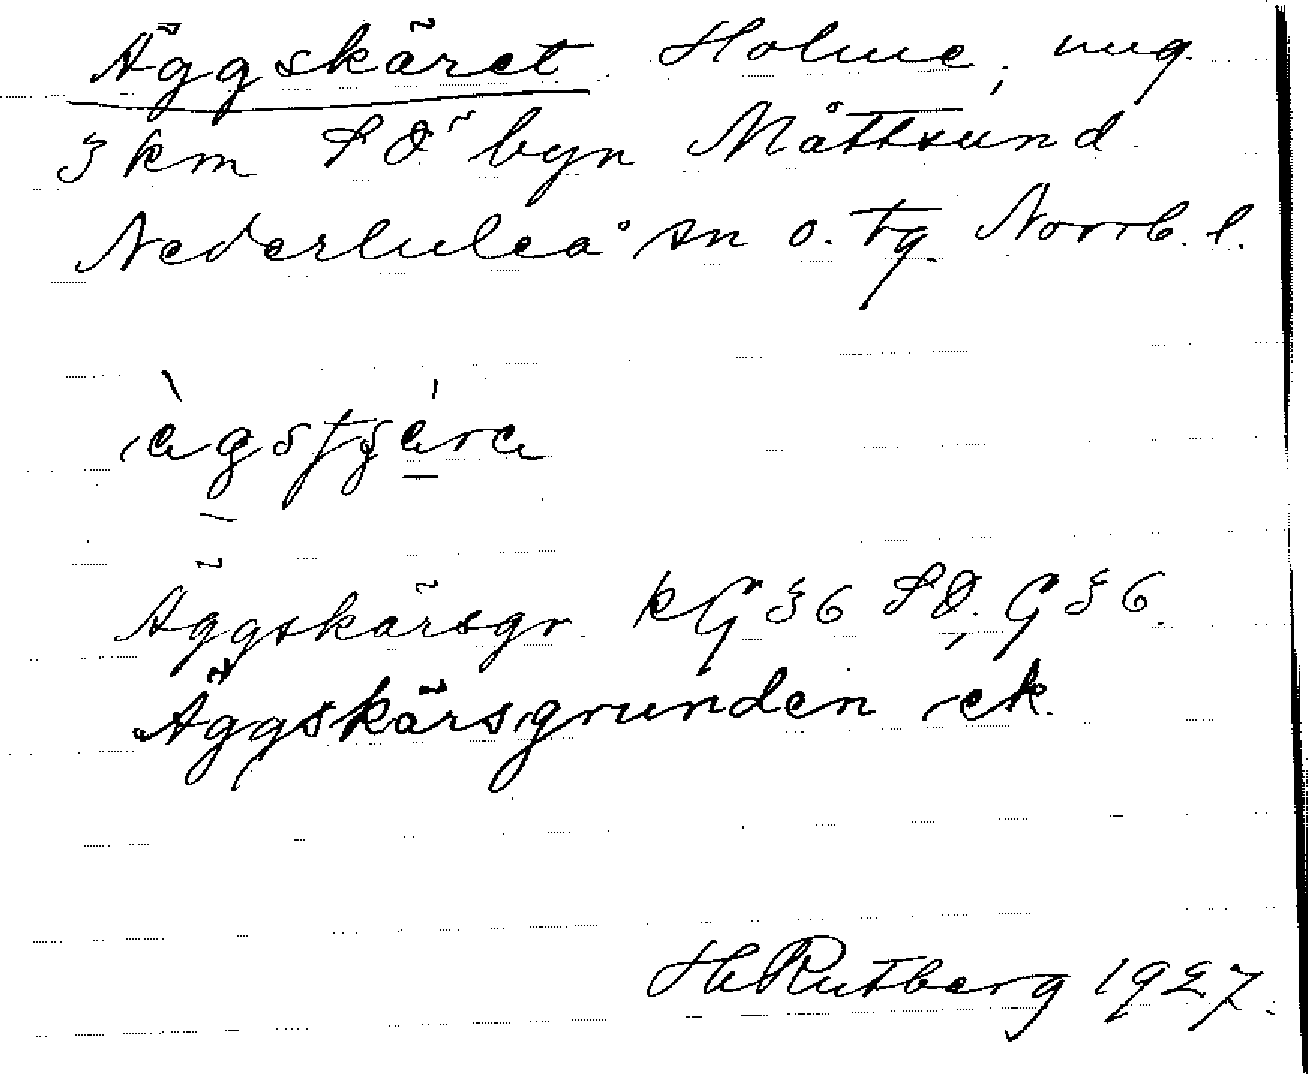 Äggskäret. Holme, ung.
3 km SO" byn Måttsund
Nederluleå sn o. tg. Norrb. l.
Äggskärsgr. kG 36 SO, G 36.
Äggskärsgrunden ek.
H Rutberg 1927.